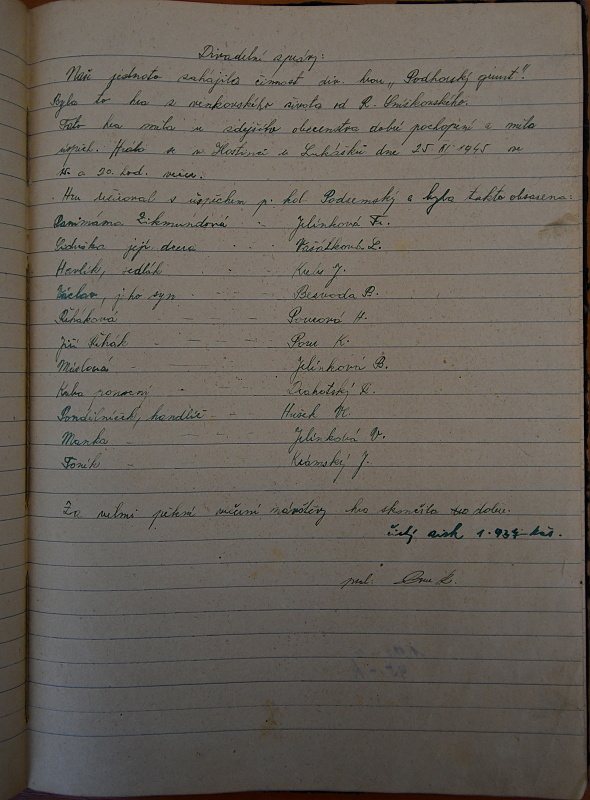 Divadelní zprávy:
Naše jednota zahájila činnost div. hrou „Podhorský grunt".
Byla to hra z venkovského života od R.
Tato hra měla u zdejšího obecenstva dobré pochopení a měla
úspěch. Hrála se v Hostinci u Lukášků dne 25 XI 1945 ve
a 20. hod. večer.
Hru režíroval s úspěchem p. kol Podzemský a byla takto obsazena:
Panímáma Zikmundová - Jelínková Fr.
její dcera - - - Vašátková L.
Havlík, sedlák - - - Kuliš J.
Václav, jeho syn - - - Bezvoda P.
Řiháková - - - Pourová H.
Jiří Řihák - - - Pour K.
Mášlová - - - Jelínková B.
Kuba ponocný - - - Drahotský
Pondělníček, handlíř - - Hušek
Manka - - - Jelínková V.
Toník - - - Krámský J.
Za velmi pěkné večerní návštěvy hra skončila dobře.
čistý zisk 1.934 kčs.